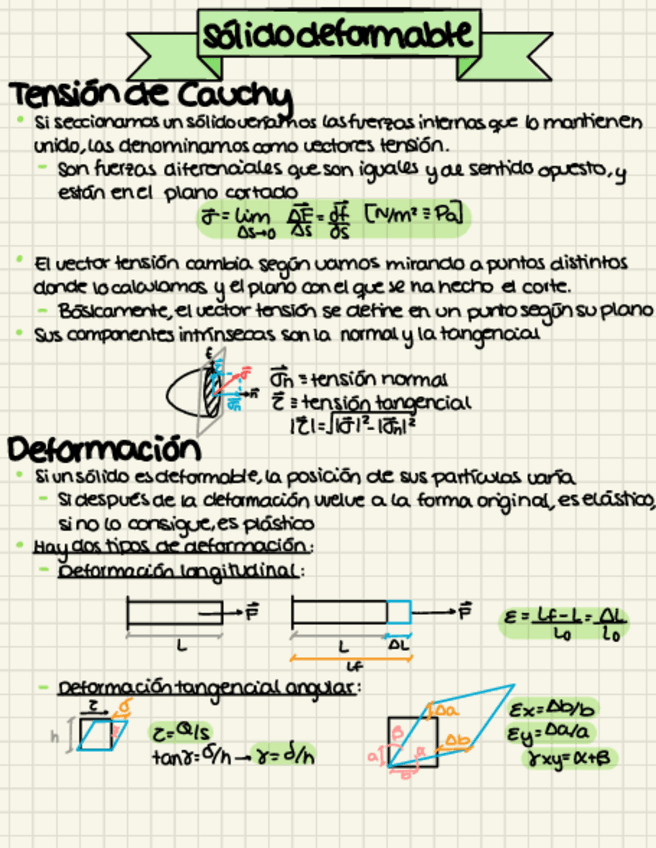 Sólido deformable
Tensión de Cauchy
• Si seccionamos un sólido veríamos las fuerzas internas que lo mantienen
unido, las denominamos como vectores tensión.
- Son fuerzas diferenciales que son iguales y de sentido opuesto, y
están en el plano cortado
σ⃗ = lim ΔF⃗/Δs = df⃗/ds [N/m² ≡ Pa]
Δs→0
• El vector tensión cambia según vamos mirando a puntos distintos
donde lo calculamos y el plano con el que se ha hecho el corte.
- Básicamente, el vector tensión se define en un punto según su plano
• Sus componentes intrínsecas son la normal y la tangencial
σ⃗n ≡ tensión normal
τ⃗ ≡ tensión tangencial
|τ⃗| = √|σ⃗|² - |σ⃗n|²
Deformación
• Si un sólido es deformable, la posición de sus partículas varía
- Si después de la deformación vuelve a la forma original, es elástico,
si no lo consigue, es plástico
• Hay dos tipos de deformación:
- Deformación longitudinal:
F⃗ F⃗
L L ΔL
Lf
ε = Lf - L / L₀ = ΔL / L₀
- Deformación tangencial angular:
τ δ
h
τ = Q/s
tanγ = δ/h → γ = δ/h
Δa
β
a α Δb
b
εx = Δb/b
εy = Δa/a
γxy = α + β